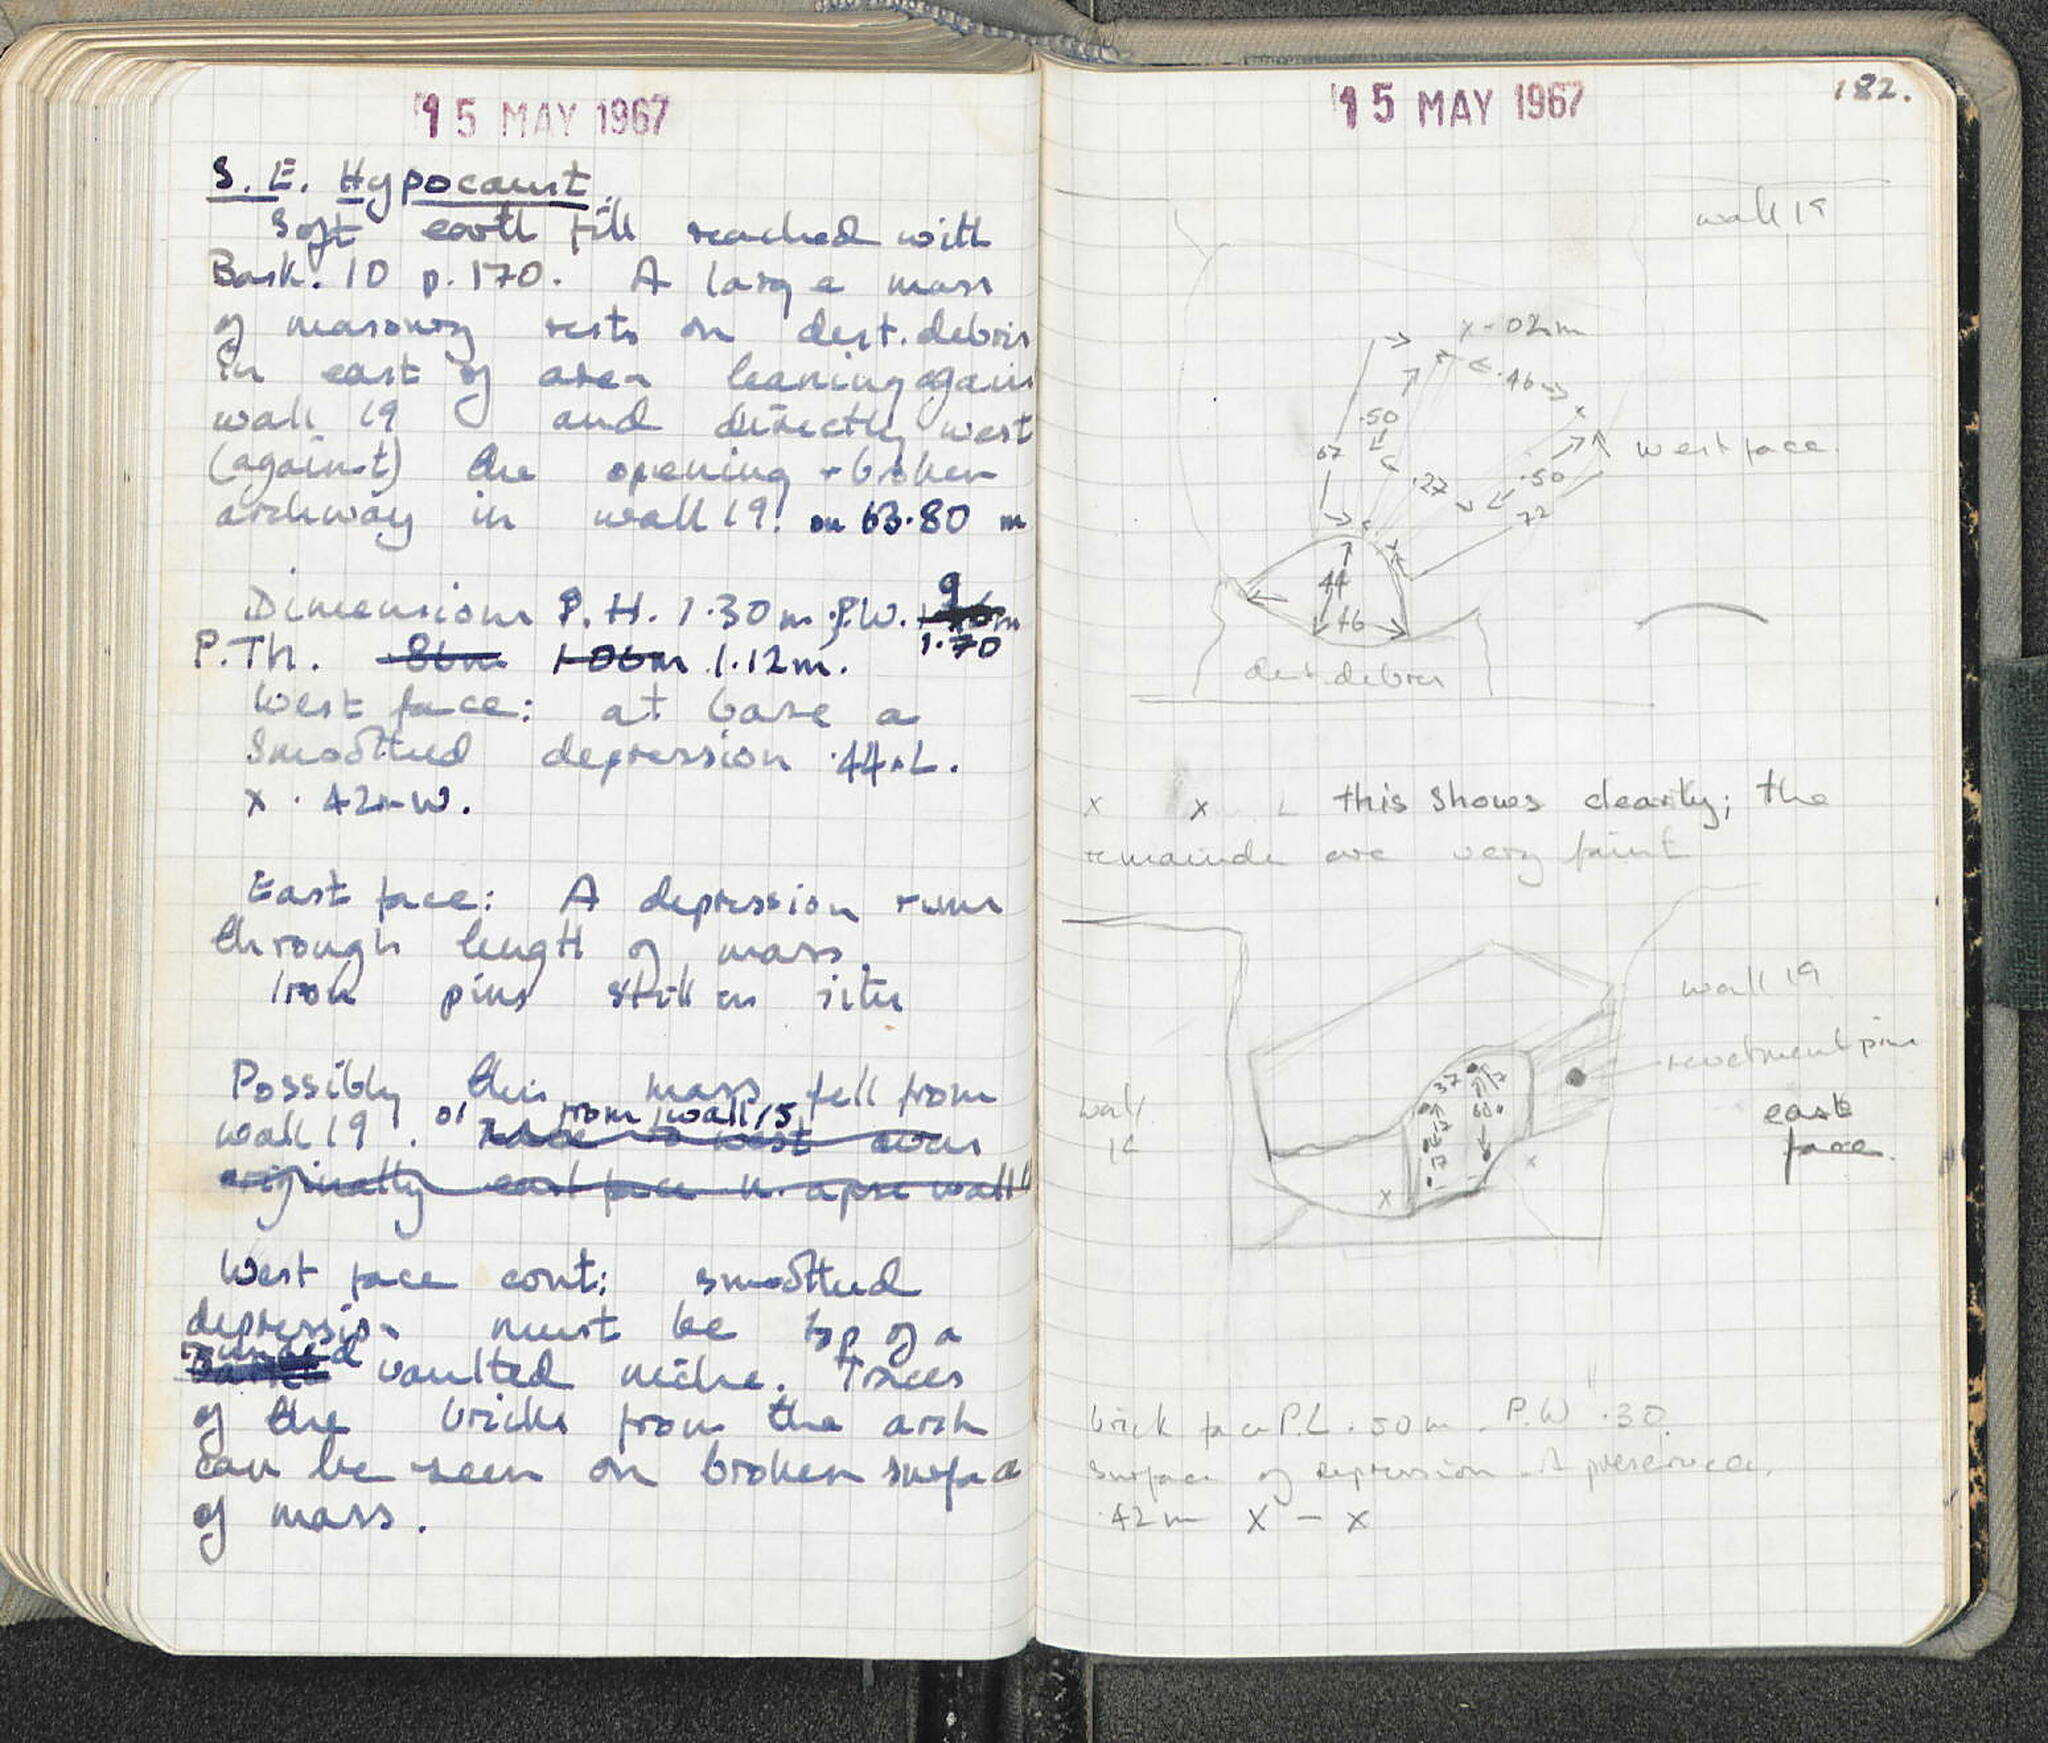 15 MAY 1967
S. E. Hypocaust.
Soft earth fill reached with
Bask. 10 p. 170. A large mass
of masonry rests on dest. debris
in east of area leaning again
wall 19 and directly west
(against) the opening + broken
archway in wall 19. on 63.80 m
Dimensions P. H. 1.30 m. P.W.
1.70
P.Th. .86m 1.06m 1.12m.
West face: at base a
smoothed depression .44m L.
x .42m W.
East face: A depression runs
through length of mass.
Iron pins still in situ
Possibly this mass fell from
or from wall 15
wall 19.
originally east face N. apse wall
West face cont: smoothed
depression must be top of a
vaulted niche. Traces
of the bricks from the arch
can be seen on broken surface
of mass.
15 MAY 1967
182.
wall 19
x - 02m
.46
.50
67
west face.
.27
.50
72
44
46
dest. debris
x x this shows clearly; the
remainder are very faint
wall 19
revetment pins
wall
east
face.
37
x
x
brick face P.L. .50m. P.W .30
surface of depression preserved.
.42m x - x